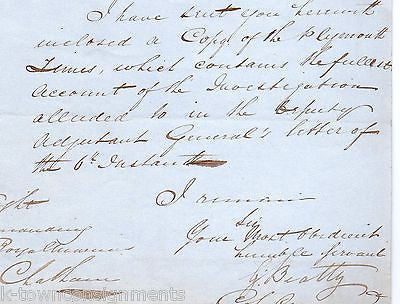 I have sent you herewith
inclosed a Copy of the Plymouth
Times, which contains the fullest
Account of the Investigation
alluded to in the Deputy
Adjutant General's letter of
the 6th Instant
I remain
Sir
Your Most Obedient
humble Servant
Beatty
Commanding
Royal Marines
Chatham
k-townconsignments